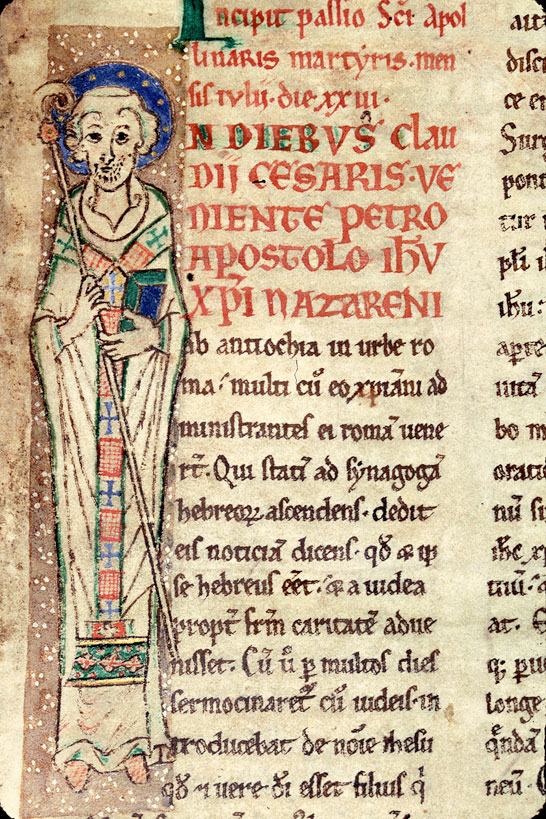 Incipit passio Sci Apol
linaris martyris. men
sis iulii. die. xxiii.
N DIEBVS Clau
DII CESARIS. VE
NIENTE PETRO
APOSTOLO IHV
XPI NAZARENI
ab antiochia in urbe ro
ma. multi cū eo xpiani ad
ministrantes ei romā uene
rt̄. Qui statī ad synagogā
hebreoꝝ ascendens. dedit
eis noticiā dicens. qđ & ip
se hebreus eēt. & a iudea
propt̄ frm̄ caritatē adue
nisset. Cū ū p multos dies
sermocinaret̄ cū iudeis. in
troducebat de noīe ihesu
qđ uere dī esset filius q
disci
ce e
Surg
pon
tur
ihu
apte
uita
bo m
oratio
nū si
ihc xp
uiu
at.
longe
qndā
neū. C